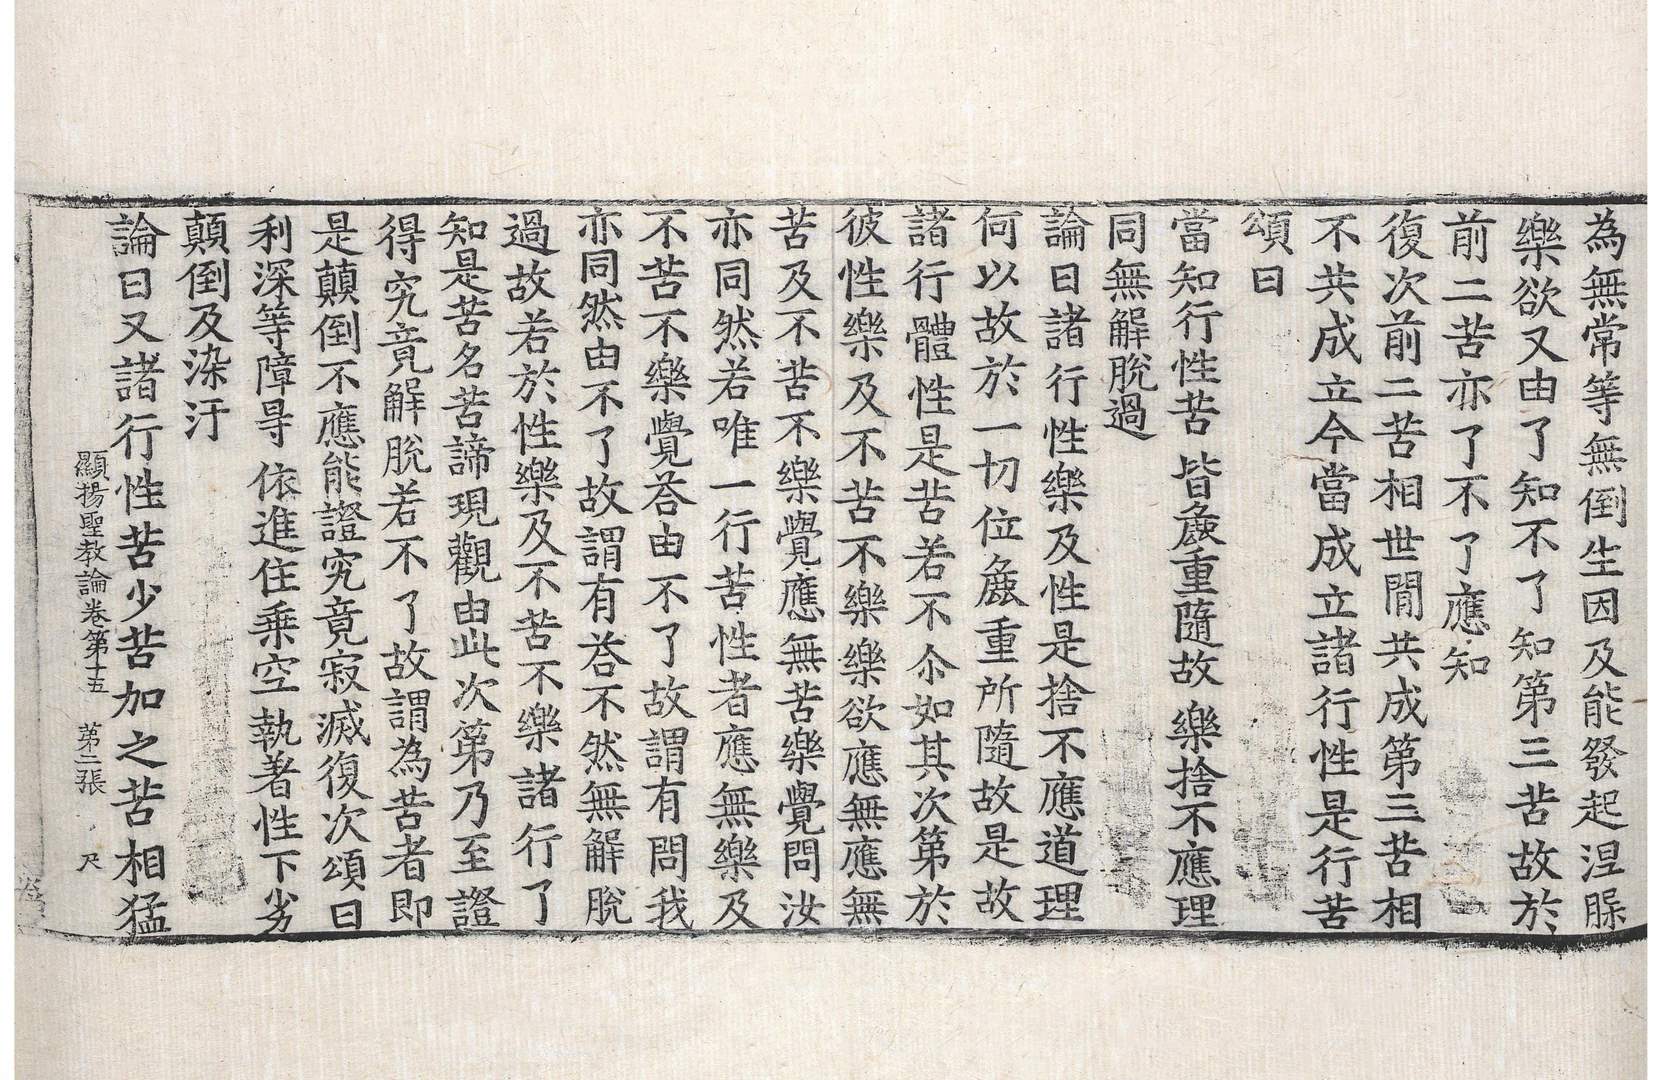 為無常等無倒生因及能發起涅槃
樂欲又由了知不了知第三苦故於
前二苦亦了不了應知
復次前二苦相世間共成第三苦相
不共成立今當成立諸行性是行苦
頌曰
當知行性苦　皆麁重隨故　樂捨不應理
同無解脫過
論曰諸行性樂及性是捨不應道理
何以故於一切位麁重所隨故是故
諸行體性是苦若不尒如其次第於
彼性樂及不苦不樂樂欲應無應無
苦及不苦不樂覺應無苦樂覺問汝
亦同然若唯一行苦性者應無樂及
不苦不樂覺荅由不了故謂有問我
亦同然由不了故謂有荅不然無解脫
過故若於性樂及不苦不樂諸行了
知是苦名苦諦現觀由此次第乃至證
得究竟解脫若不了故謂為苦者即
是顛倒不應能證究竟寂滅復次頌曰
利深等障㝵　依進住乗空　執著性下劣
顛倒及染汙
顯揚聖教論卷第十五　第二張　尺
論曰又諸行性苦少苦加之苦相猛